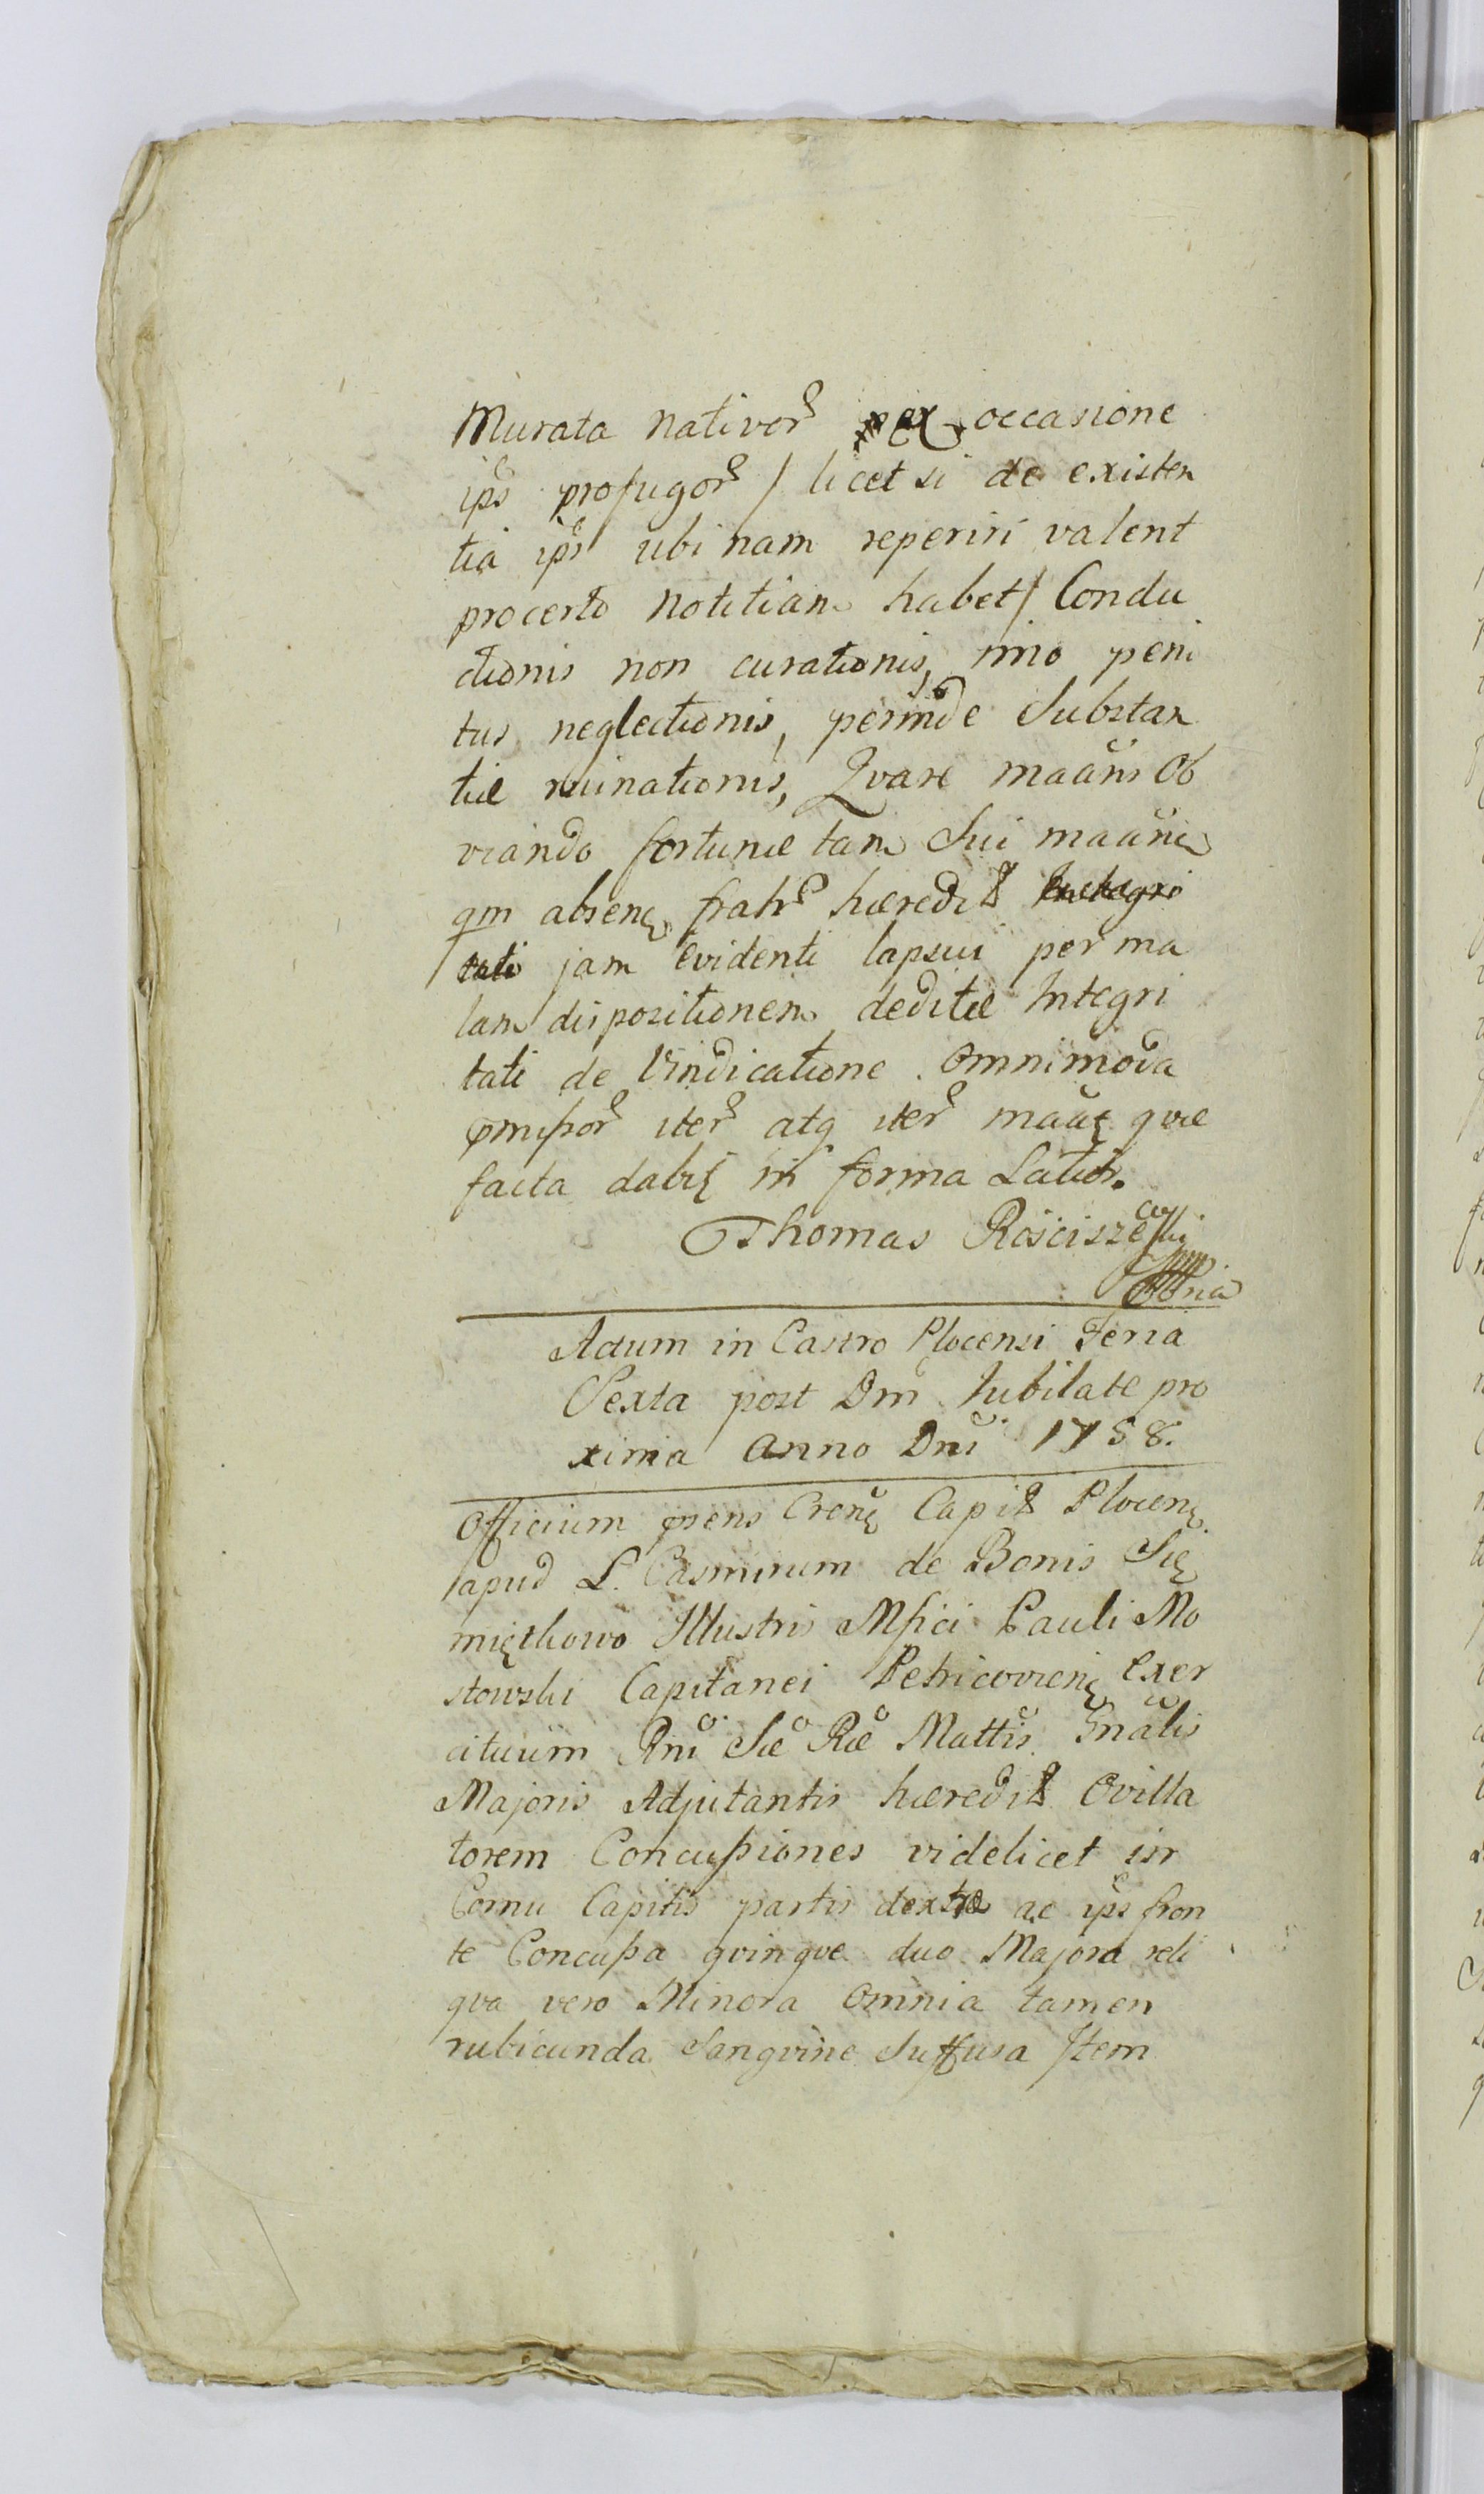 Murata nativor ex occasione
ips profugor / licet si de existen
tia ips ubi nam reperiri valent
procerto notitiam habet / Condu
ctionis non curationis, imo peni
tus neglectionis, perinde Substan
tiæ ruinationis, Qvare maãns Ob
viando fortunæ tam Sui maãnis
qm absenę fratr hæredit Integri
tati jam evidenti lapsui per ma
lam dispositionem deditæ Integri
tati de Vindicatione omnimoda
pmißor iter atq iter maãt qvæ
facta dabit in forma Latior.
Thomas Rościszewski
mpria
Actum in Castro Plocensi Feria
Sexta post Dm̃ Jubilate pro
xima Anno Dni 1758.
Officium pñens Crenę Capit Plocenę
apud L. Casmirum de Bonis Się
miętkowo Illustris Mfici Pauli Mo
stowski Capitanei Petricovienę Exer
cituum Rni Sæ Ræ Mattis Gnalis
Majoris Adjutantis hæredit Ovilla
torem Concußiones videlicet in
Cornu Capitis partis dextræ ac ips fron
te Concußa qvinqve duo Majora reli
qva vero Minora Omnia tamen
rubicunda Sangvine Suffusa Item